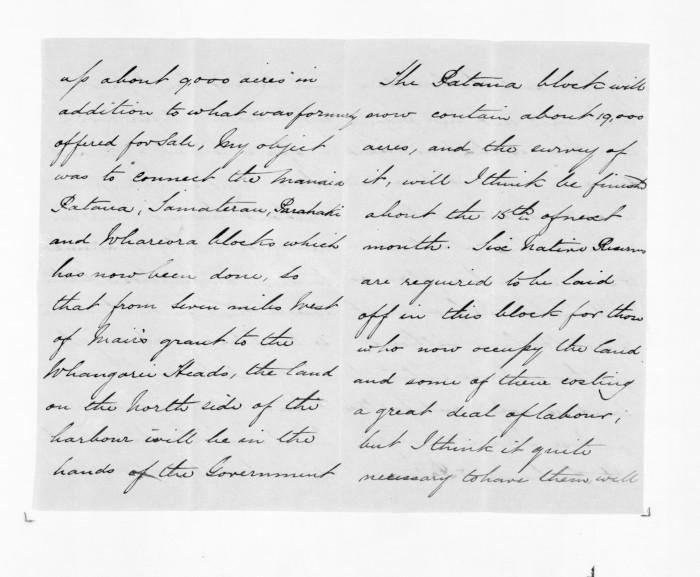 up about 9,000 acres in
addition to what was formerly
offered for Sale, My object
was to connect the Manaia
Patana, Tamaterau, Parahaki
and Whareora blocks which
has now been done, so
that from Seven miles West
of Mair's grant to the
Whangarei Heads, the land
on the North side of the
harbour will be in the
hands of the Government
The Patana block will
now contain about 19,000
acres, and the survey of
it, will I think be finished
about the 15th of next
month. Six Native Reserves
are required to be laid
off in this block for those
who now occupy the land
and some of them costing
a great deal of labour;
but I think it quite
necessary to have them well